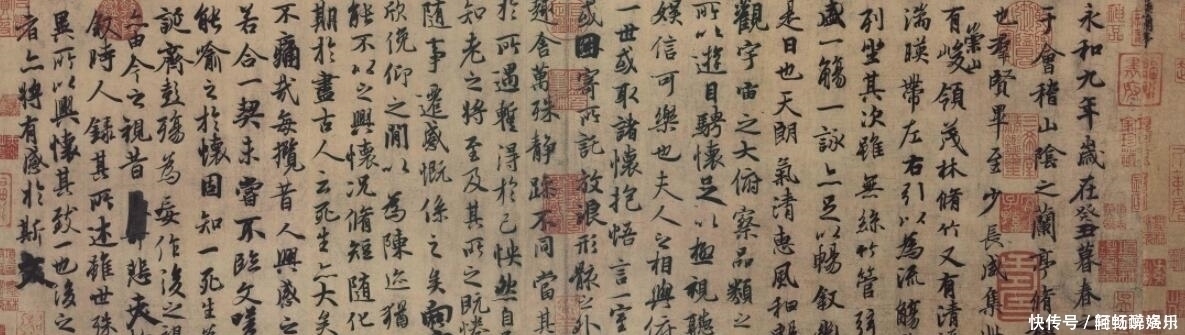 永和九年歲在癸丑暮春
于會稽山陰之蘭亭脩
也群賢畢至少長咸集
有崇山峻領茂林脩竹又有清
湍暎帶左右引以為流觴
列坐其次雖無絲竹管弦
盛一觴一詠亦足以暢敘幽
是日也天朗氣清惠風和暢
觀宇宙之大俯察品類之
所以遊目騁懷足以極視聽
娛信可樂也夫人之相與俯
一世或取諸懷抱悟言一室
或因寄所託放浪形骸之外
趣舍萬殊靜躁不同當其
於所遇蹔得於己怏然自
知老之將至及其所之既惓
隨事遷感慨係之矣向
欣俛仰之閒以為陳迹猶
能不以之興懷況脩短隨化
期於盡古人云死生亦大矣
不痛哉每攬昔人興感之
若合一契未嘗不臨文嗟
能喻之於懷固知一死生
誕齊彭殤為妄作後之視
亦由今之視昔悲夫
敘時人錄其所述雖世殊
異所以興懷其致一也後之
者亦將有感於斯文